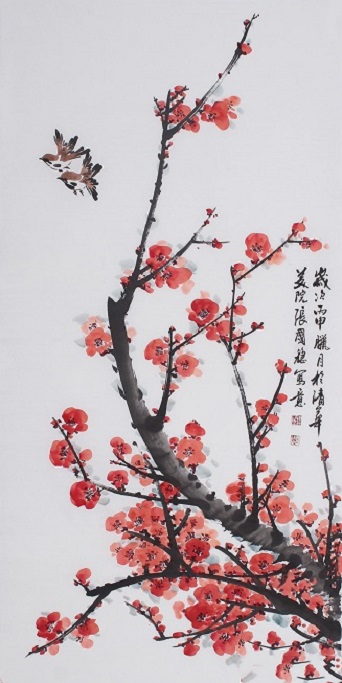 歲次丙申臘月於清華
美院張國穩寫意